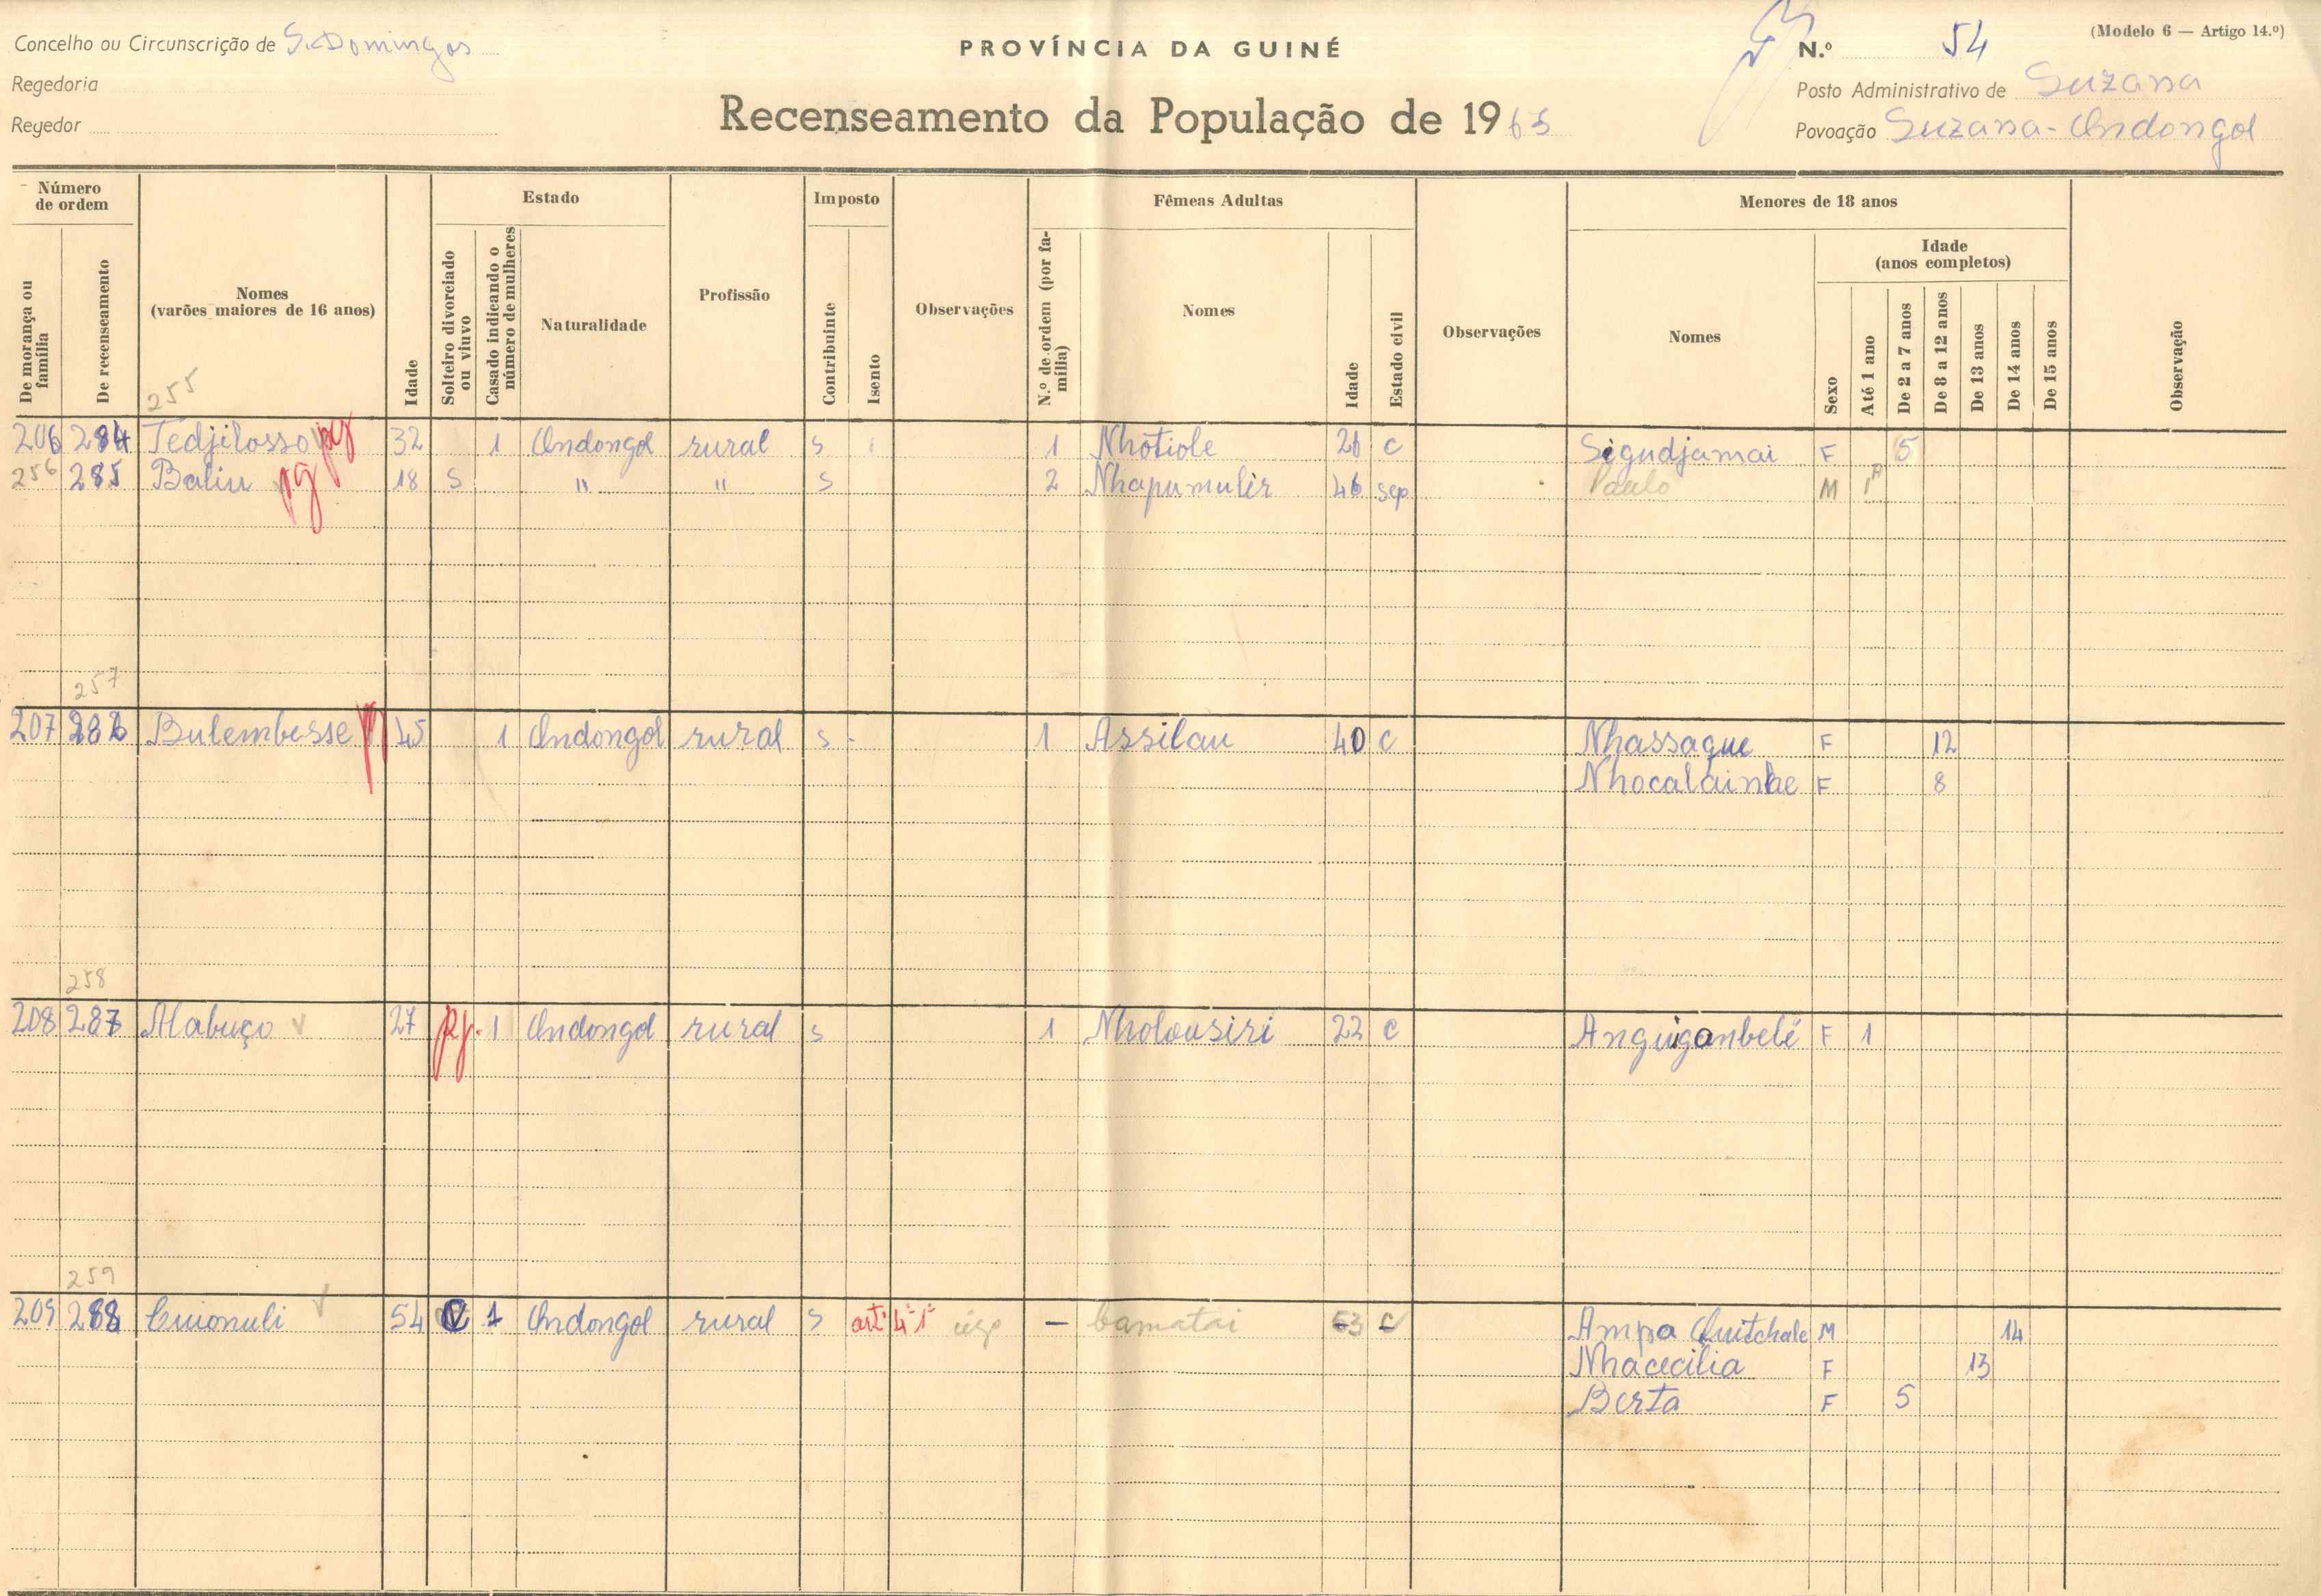 Concelho ou Circunscrição de S. Domingos
Regedoria
Regedor
PROVÍNCIA DA GUINÉ
Recenseamento da População de 1963
(Modelo 6 — Artigo 14.º)
N.º 54
Posto Administrativo de Suzana
Povoação Suzana - Ondongol
Número de ordem
De morança ou família
De recenseamento
Nomes (varões maiores de 16 anos)
Idade
Estado
Solteiro divorciado ou viuvo
Casado indicando o número de mulheres
Naturalidade
Profissão
Imposto
Contribuinte
Isento
Observações
Fêmeas Adultas
N.º de ordem (por família)
Nomes
Idade
Estado civil
Observações
Menores de 18 anos
Nomes
Sexo
Idade (anos completos)
Até 1 ano
De 2 a 7 anos
De 8 a 12 anos
De 13 anos
De 14 anos
De 15 anos
Observação
255
206 284 Tedjilosso pg 32 1 Ondongol rural s 1 Nhotiole 26 c Sigudjamai F 5
256 285 Baliu pg 18 S " " s 2 Nhapumulir 46 sep Paulo M 1
257
207 286 Bulembesse 45 1 Ondongol rural s 1 Assilau 40 c Nhassaque F 12
Nhocalainhe F 8
258
208 287 Alabuço 27 pg. 1 Ondongol rural s 1 Nholousiri 22 c Anguiganbelé F 1
259
209 288 Cuionuli 54 1 Ondongol rural s artº 4º 1º — bamatai 63 c Ampa Quitchale M 14
Nhacecilia F 13
Berta F 5